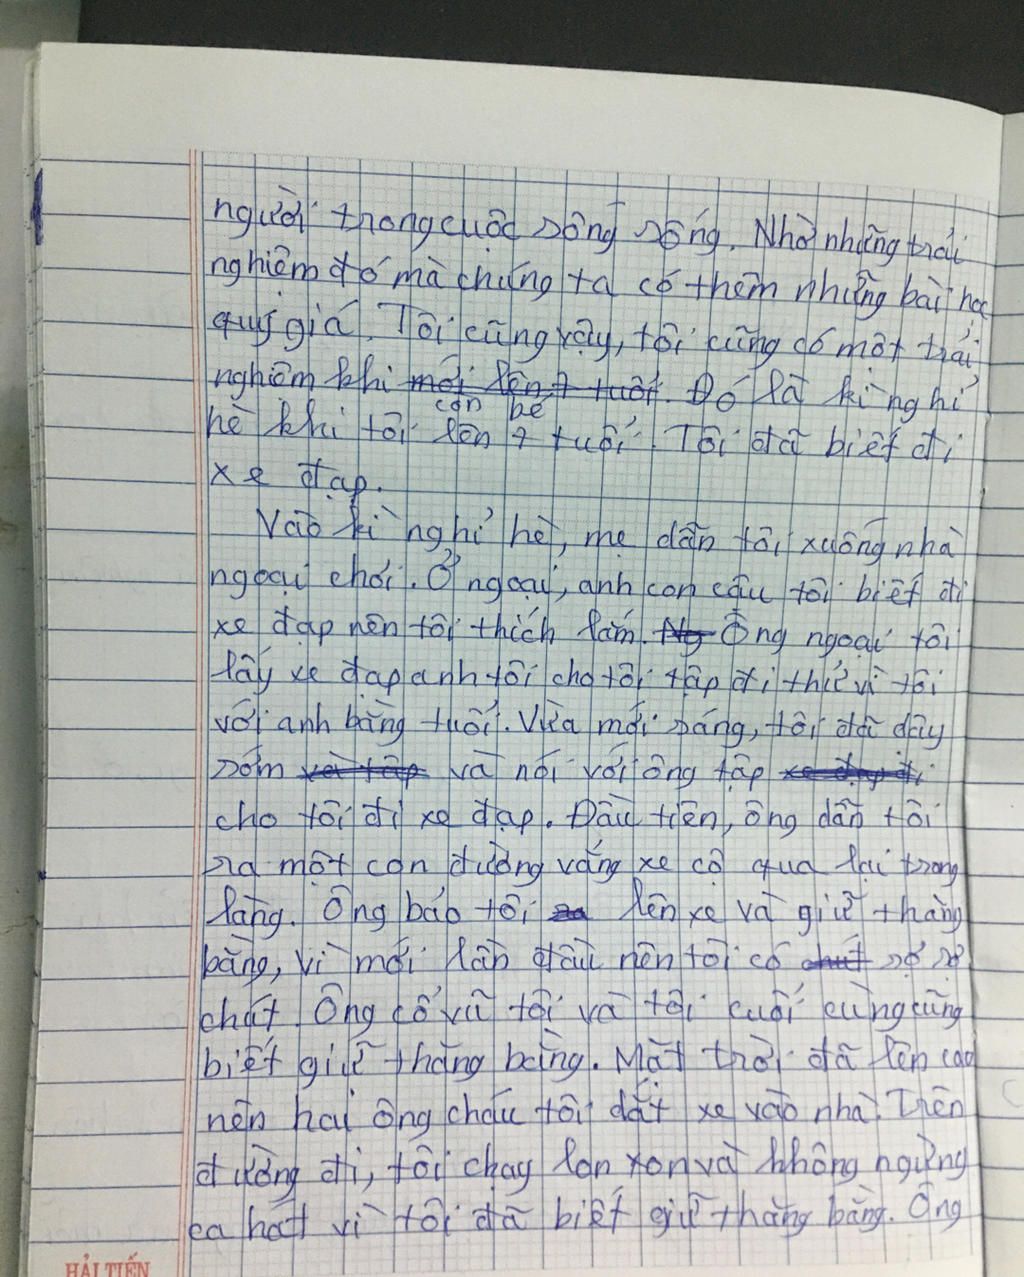 người trong cuộc sống sống. Nhờ những trải
nghiệm đó mà chúng ta có thêm những bài học
quý giá. Tôi cũng vậy, tôi cũng có một trải
nghiệm khi mới lên 7 tuổi. Đó là kì nghỉ
còn bé
hè khi tôi lên 7 tuổi. Tôi đã biết đi
xe đạp.
Vào kì nghỉ hè, mẹ dẫn tôi xuống nhà
ngoại chơi. Ở ngoại, anh con cậu tôi biết đi
xe đạp nên tôi thích lắm. Ng Ông ngoại tôi
lấy xe đạp anh tôi cho tôi tập đi thử vì tôi
với anh bằng tuổi. Vừa mới sáng, tôi đã dậy
sớm và tập và nói với ông tập xe đạp đi
cho tôi đi xe đạp. Đầu tiên, ông dẫn tôi
ra một con đường vắng xe cộ qua lại trong
làng. Ông bảo tôi lên xe và giữ thăng
bằng, vì mới lần đầu nên tôi có chút sợ sợ
chút. Ông cổ vũ tôi và tôi cuối cùng cũng
biết giữ thăng bằng. Mặt trời đã lên cao
nên hai ông cháu tôi dắt xe vào nhà. Trên
đường đi, tôi chạy lon xon và không ngừng
ca hát vì tôi đã biết giữ thăng bằng. Ông
HẢI TIẾN